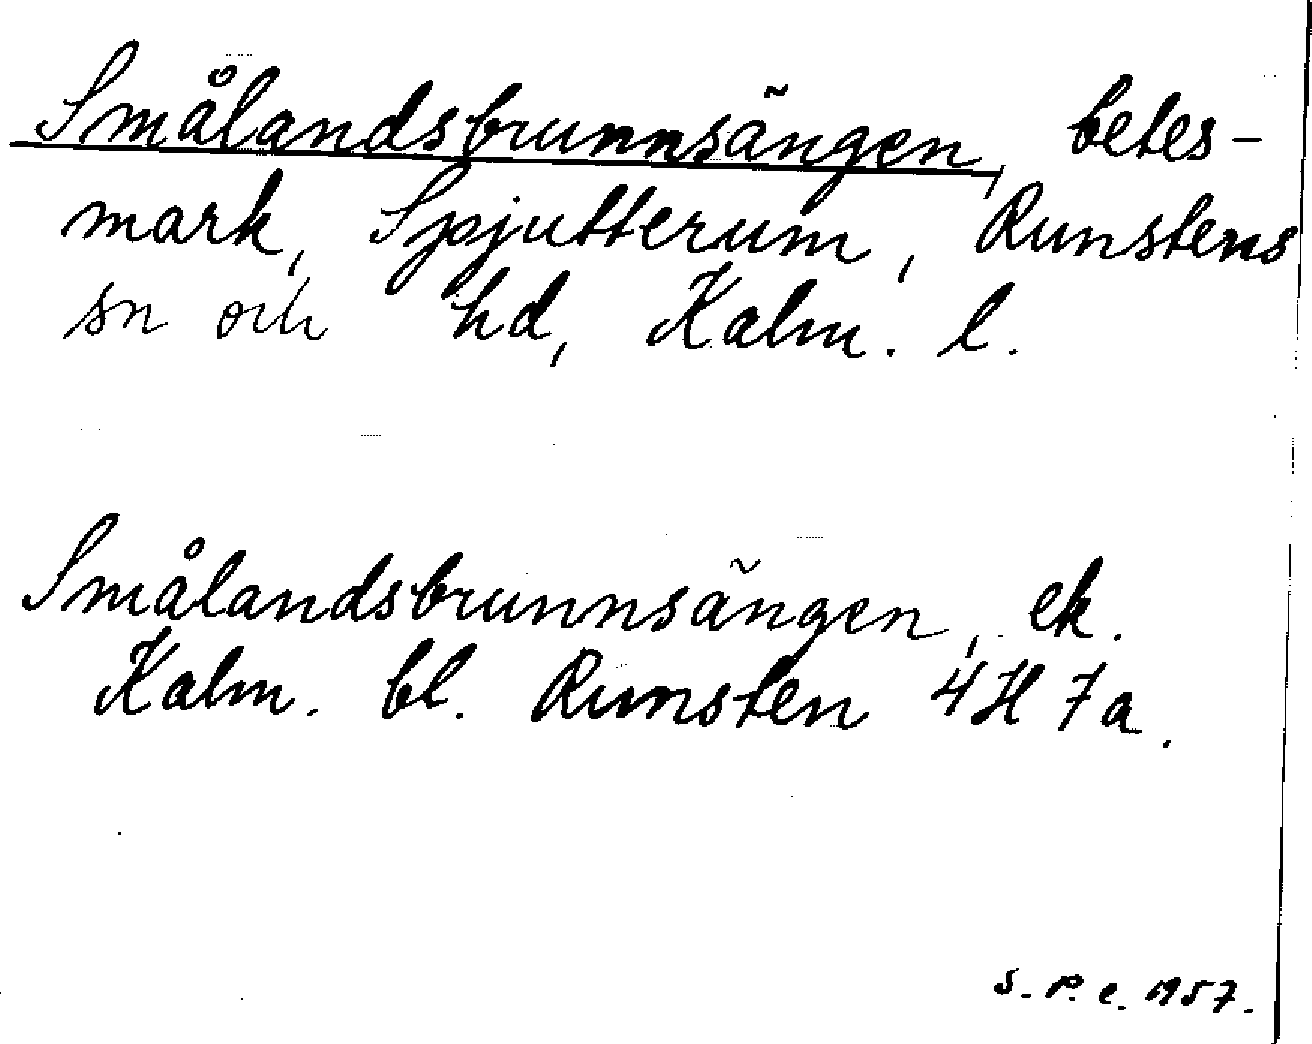 Smålandsbrunnsängen, betes-
mark, Spjutterum, Runstens
sn och hd, Kalm. l.
Smålandsbrunnsängen, ek.
Kalm. bl. Runsten 4H 7a.
S. P. e. 1957.